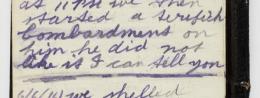 at 11 PM we then
started a terifick
bombardment on
him he did not
like it I can tell you
we shelled